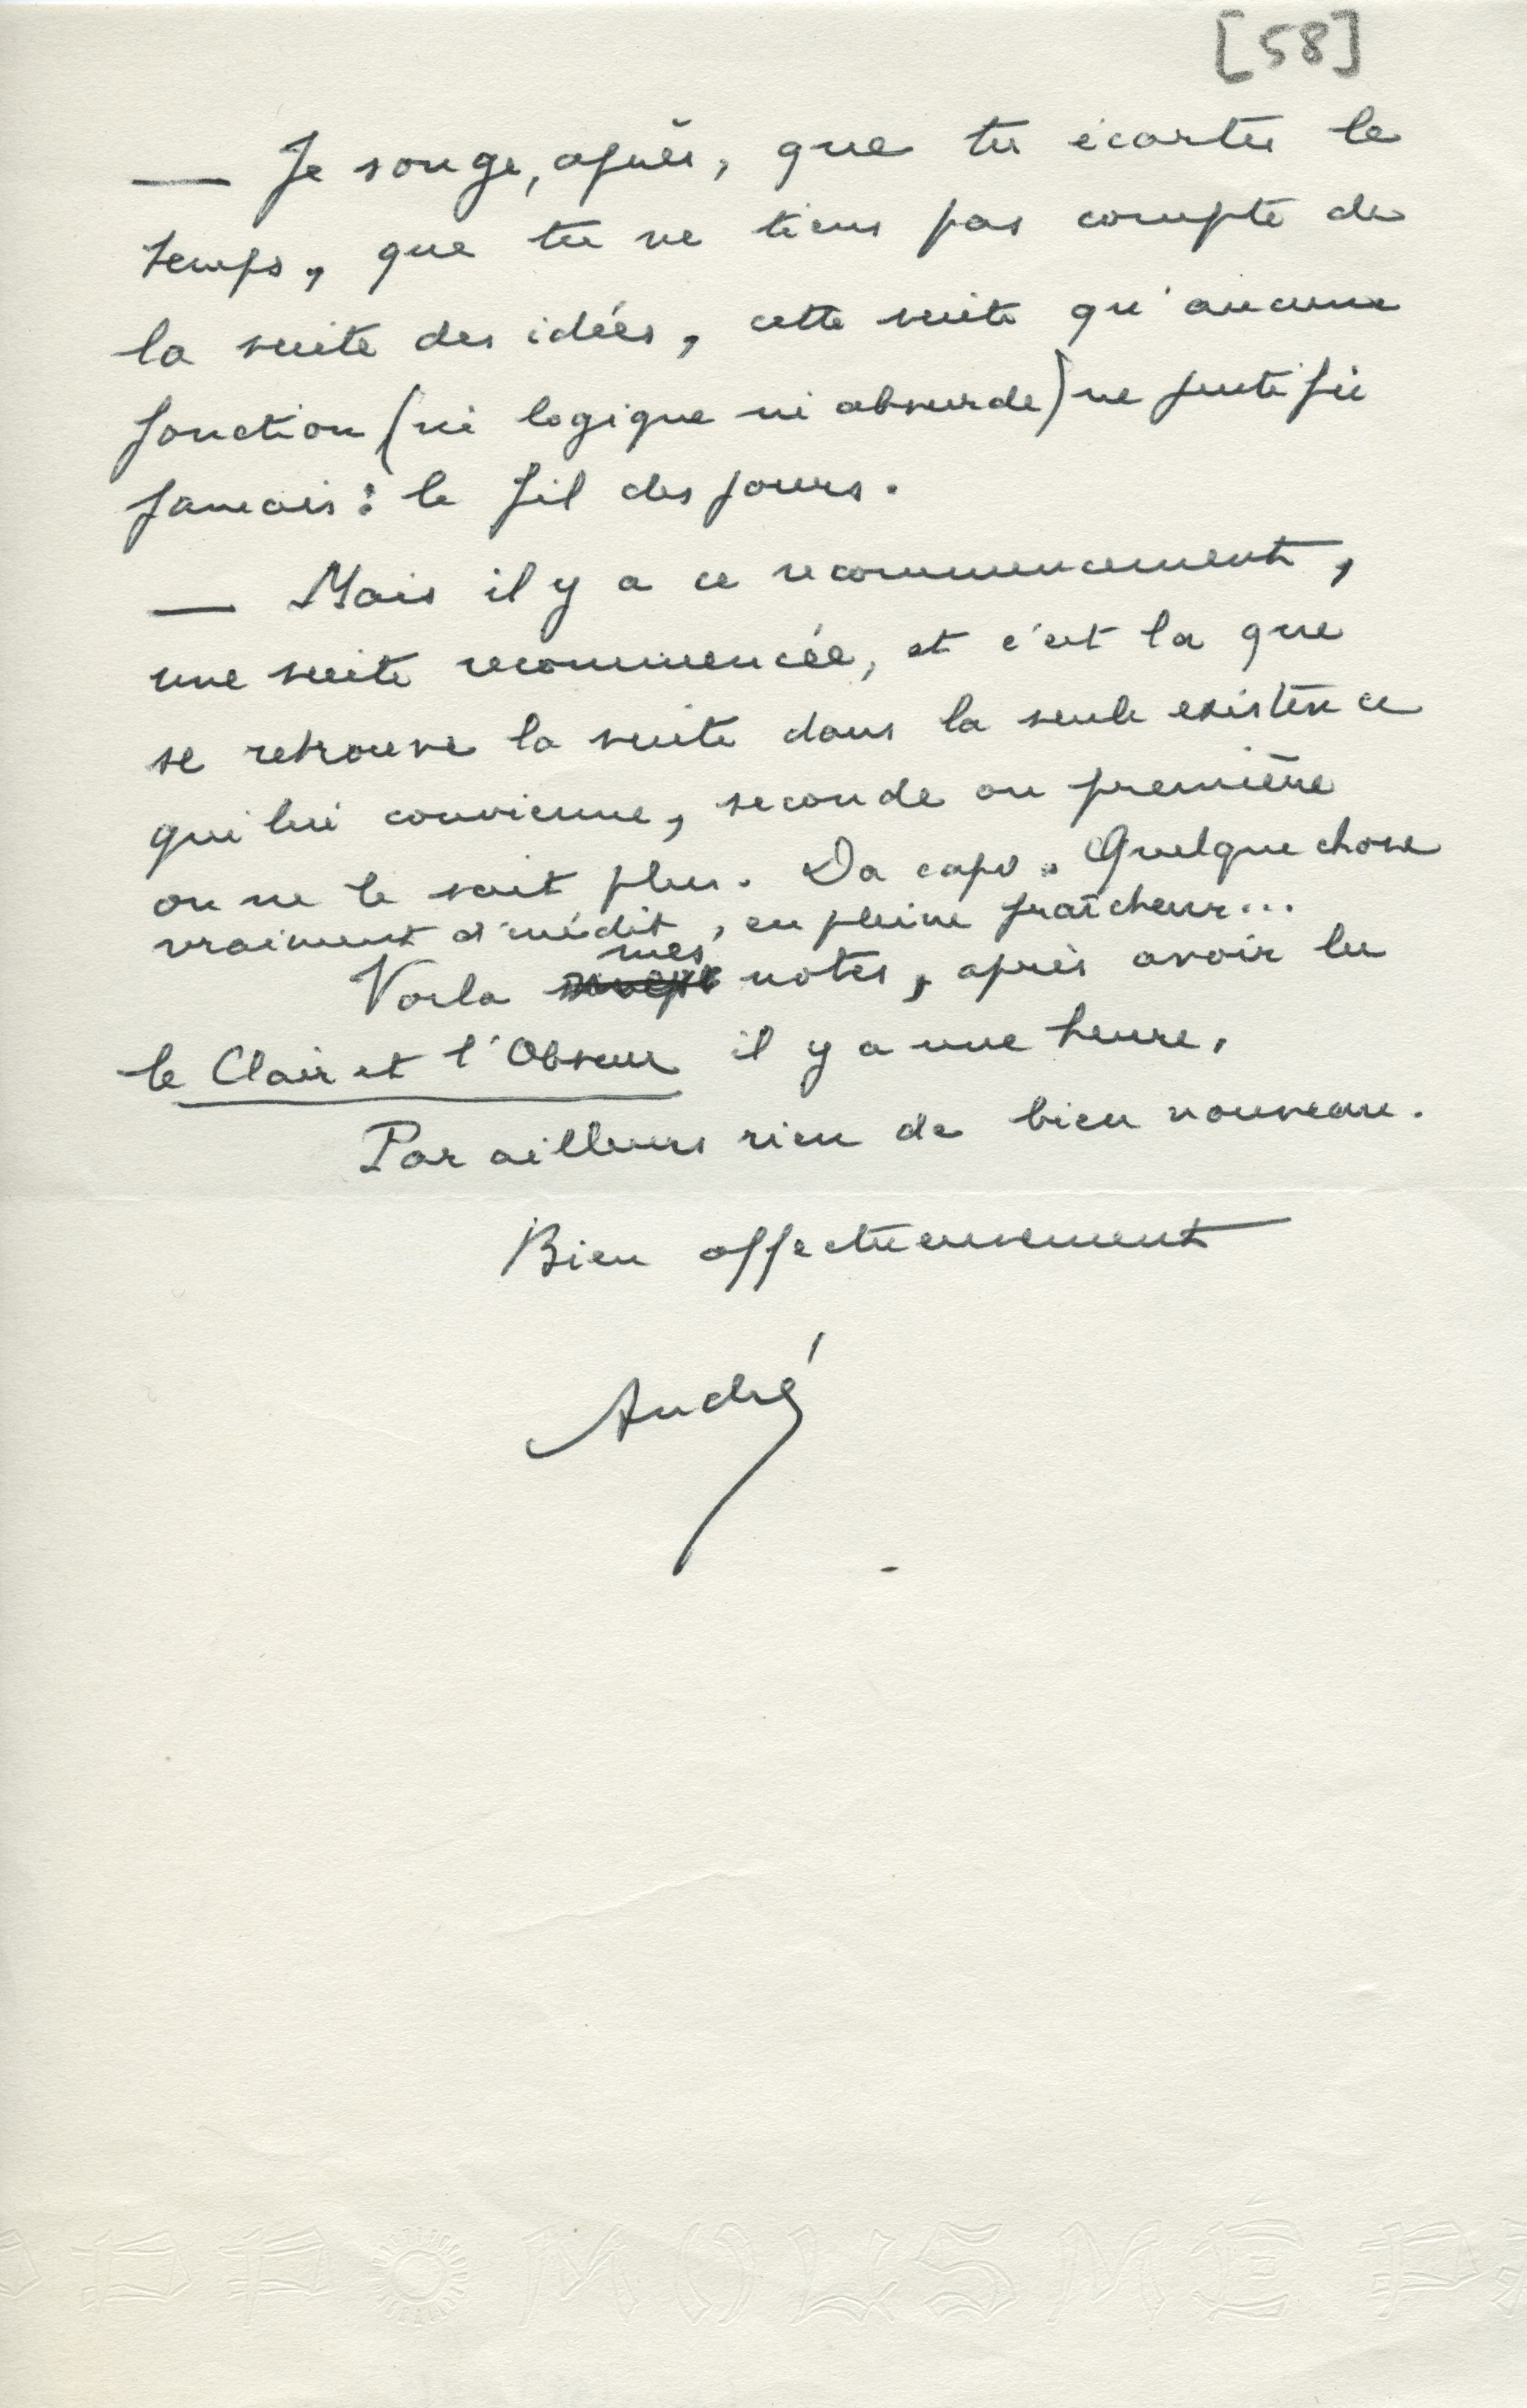 [58]
— Je songe, après, que tu écartes le
temps, que tu ne tiens pas compte de
la suite des idées, cette suite qu'aucune
fonction (ni logique ni absurde) ne justifie
jamais : le fil des jours.
— Mais il y a ce recommencement,
une suite recommencée, et c'est là que
se retrouve la suite dans la seule existence
qui lui convienne, seconde ou première
on ne le sait plus. Da capo. Quelque chose
vraiment d'inédit, en pleine fraîcheur...
Voila mes notes, après avoir lu
le Clair et l'Obscur il y a une heure.
Par ailleurs rien de bien nouveau.
Bien affectueusement
André
PPP MOUSMÉ P